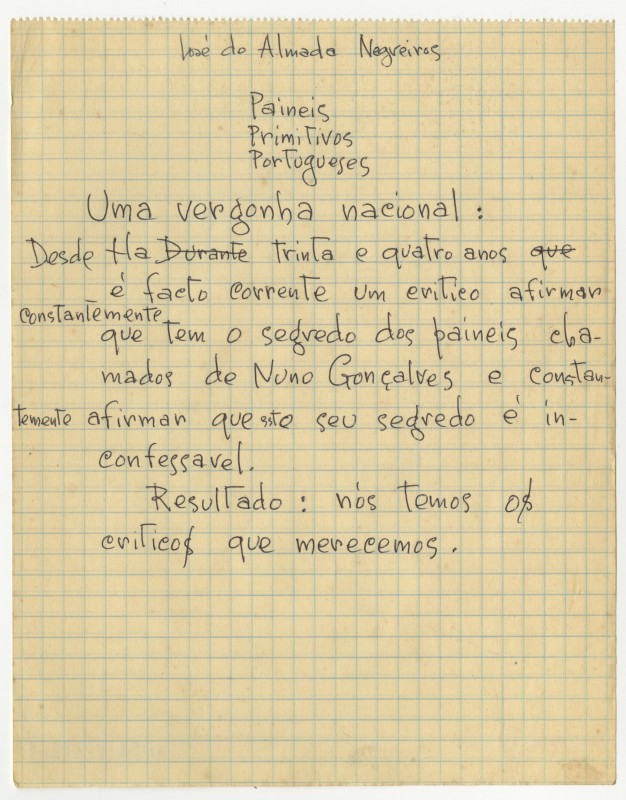 José de Almada Negreiros
Paineis
Primitivos
Portugueses
Uma vergonha nacional:
Desde Ha Durante trinta e quatro anos que
é facto corrente um critico afirmar
constantemente
que tem o segredo dos paineis cha-
mados de Nuno Gonçalves e constan-
temente afirmar que este seu segredo é in-
confessavel.
Resultado: nós temos os
criticos que merecemos.